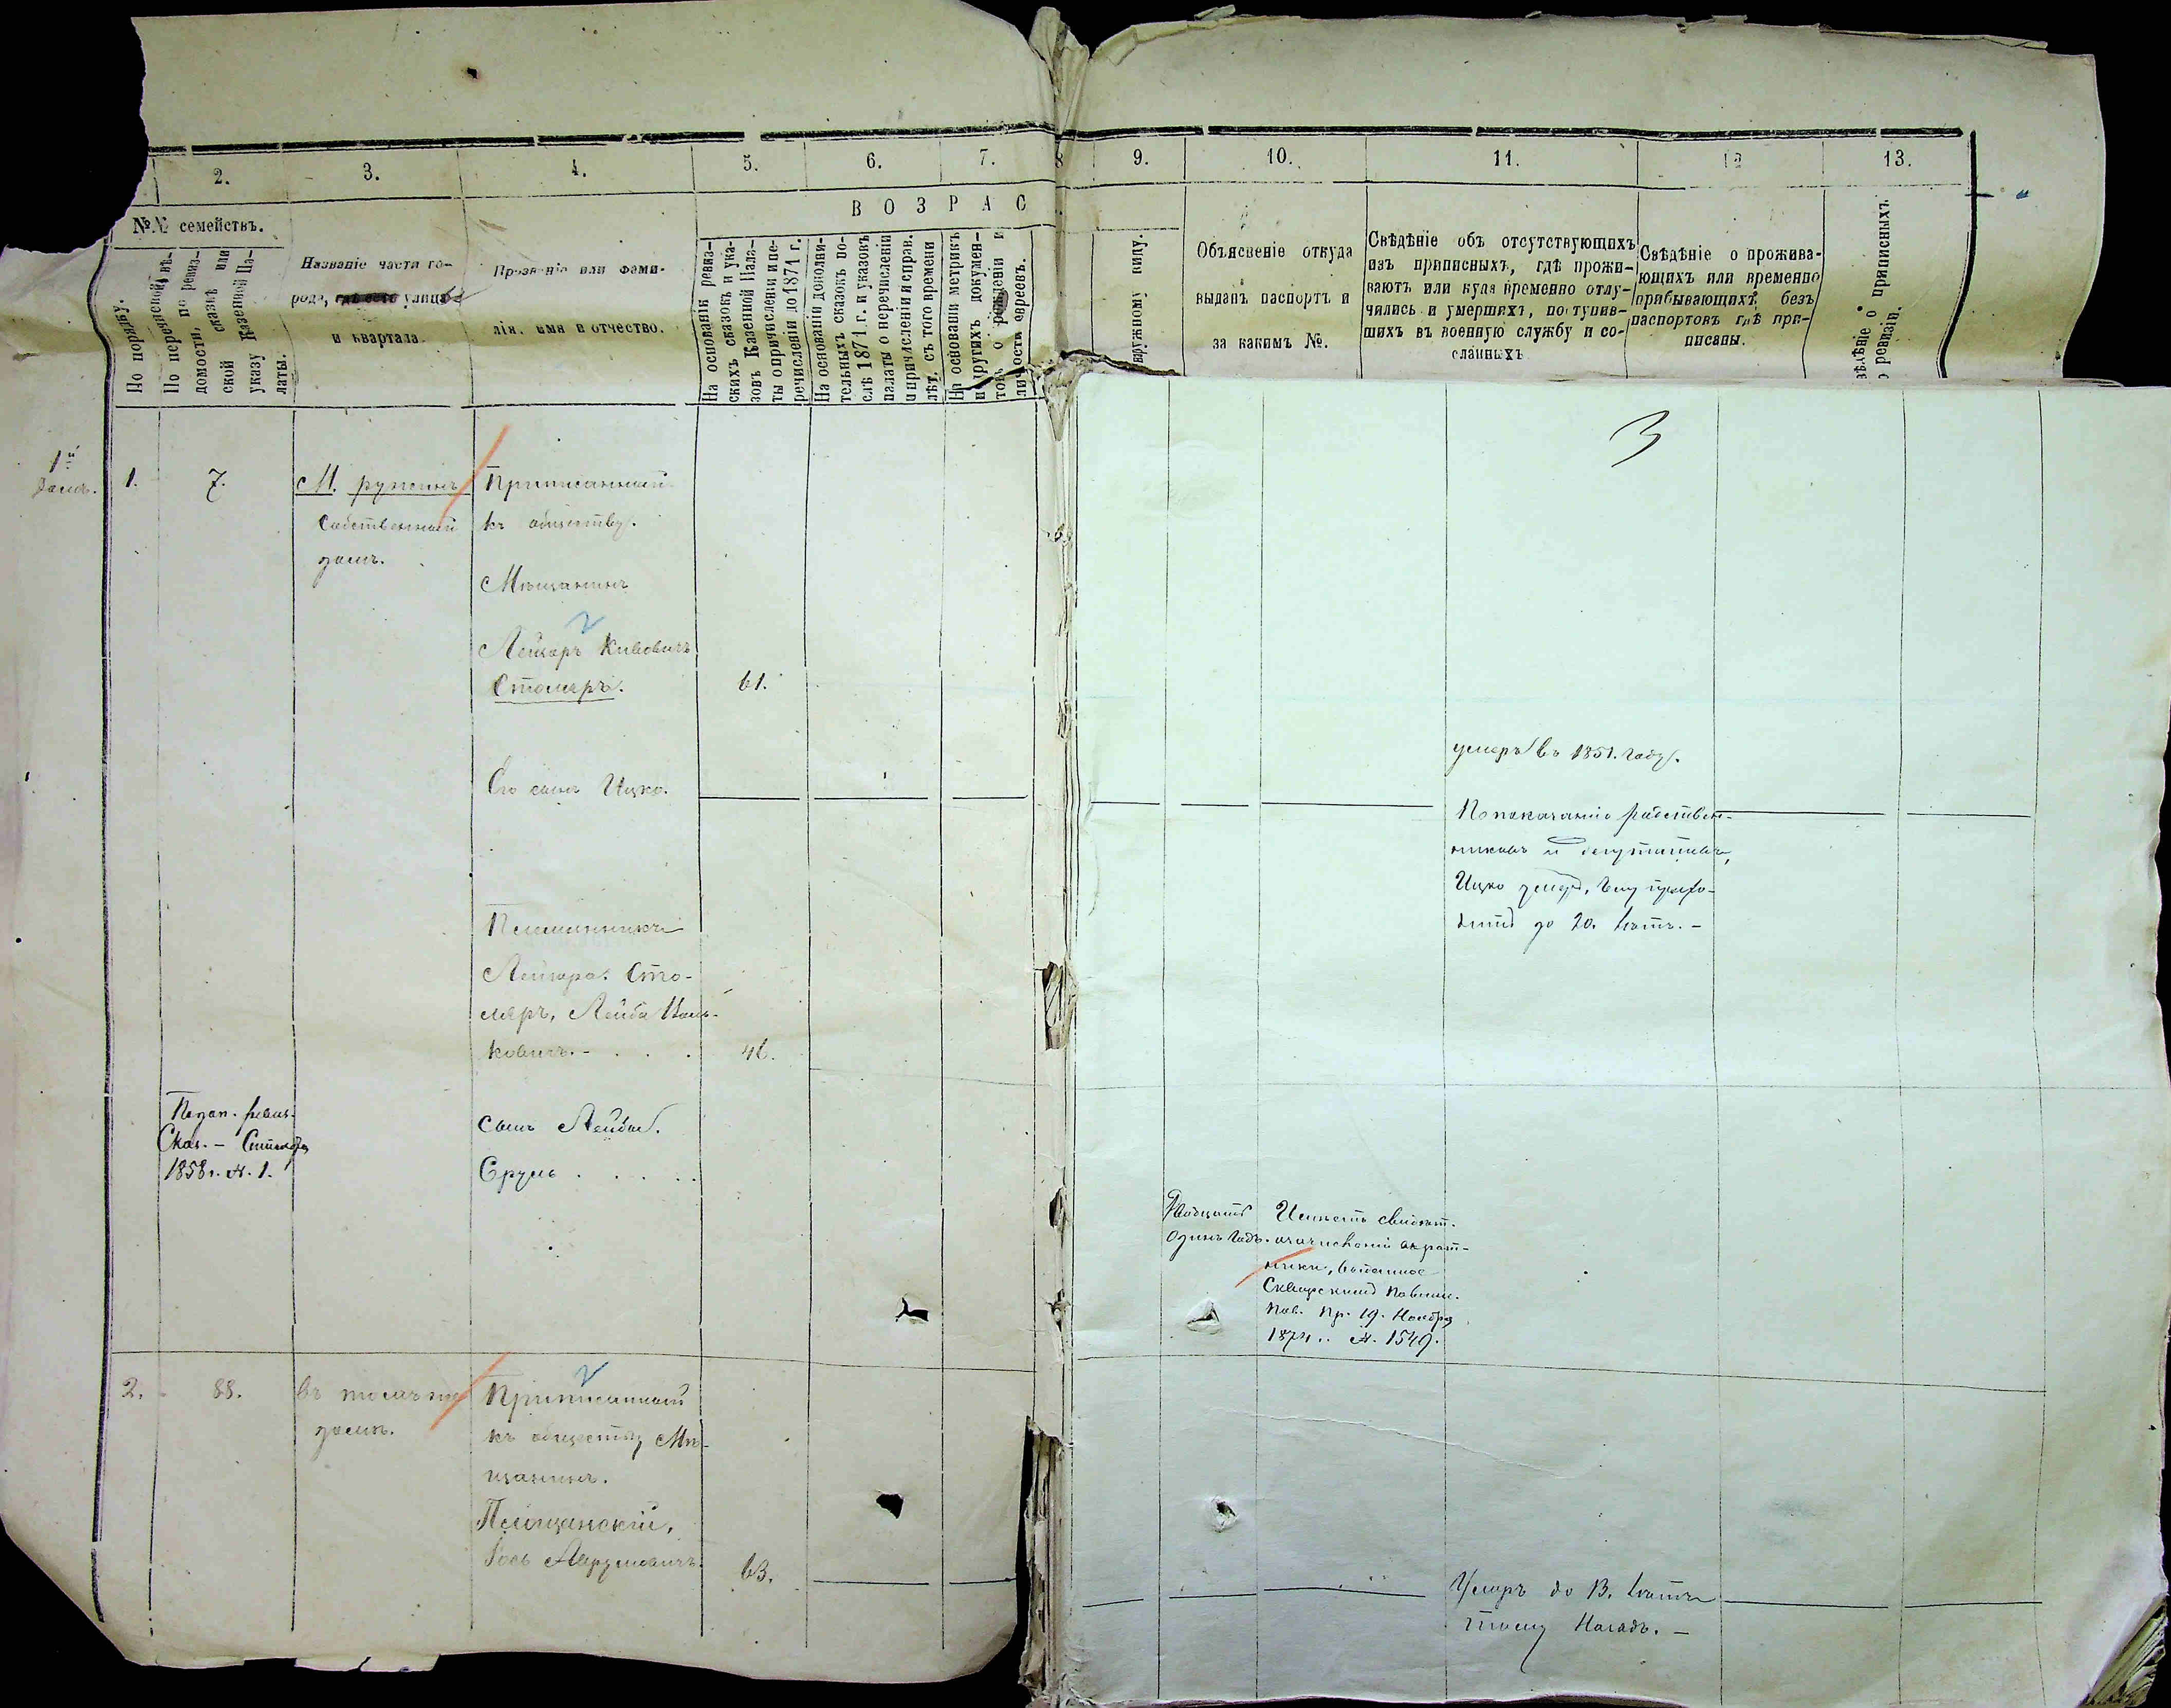 2.
3.
4.
5.
6.
7.
8
9.
10.
11.
12
13.
ВОЗРАС
№№ семействъ.
По порядку.
По перечисной вѣ-
домости, по ревиз-
ской сказкѣ или
указу Казенной Па-
латы.
Названіе части го-
рода, улицы
и квартала.
Прозваніе или фами-
лія, имя и отчество.
На основаніи ревиз-
скихъ сказокъ и ука-
зовъ Казенной Пала-
ты о причисленіи и пе-
речисленіи до 1871 г.
На основаніи дополни-
тельныхъ сказокъ по-
слѣ 1871 г. и указовъ
палаты о перечисленіи
и причисленіи и справ.
лѣт. съ того времени
На основаніи метрикъ
и другихъ докумен-
товъ о рожденіи и
личности евреевъ.
наружному виду.
Объясненіе откуда
выданъ паспортъ и
за какимъ №.
Свѣдѣніе объ отсутствующихъ
изъ приписныхъ, гдѣ прожи-
ваютъ или куда временно отлу-
чились и умершихъ, поступив-
шихъ въ военную службу и со-
сланныхъ
Свѣдѣніе о прожива-
ющихъ или временно
прибывающихъ, безъ
паспортовъ гдѣ при-
писаны.
приписныхъ
ревизіи.
3
1й
домъ.
1.
7.
М. ружинъ
Собственный
домъ.
Приписанный
къ обществу.
Мѣщанинъ
Лейзоръ Кивовичъ
Столяръ.
61.
умеръ въ 1851. году.
Его сынъ Ицко.
По показанію родствен-
никовъ и депутатовъ,
Ицко умеръ, тому
до 20. лѣтъ. -
Племянникъ
Лейзора Сто-
ляръ, Лейба
ковичъ. -
46.
По доп. ревиз.
Сказ. -
1858 г. N. 1.
Сынъ Лейбы.
Сруль
Двадцать
Одинъ годъ.
Имѣетъ свидѣт.
Сквирскимъ повин.
Пр. 19. Ноября
1874 г. N. 1549.
2.
88.
въ томъ же
домѣ.
Приписанный
къ обществу Мѣ-
щанинъ.
Аврумовичъ.
63.
Умеръ до 13. лѣтъ
тому назадъ. -